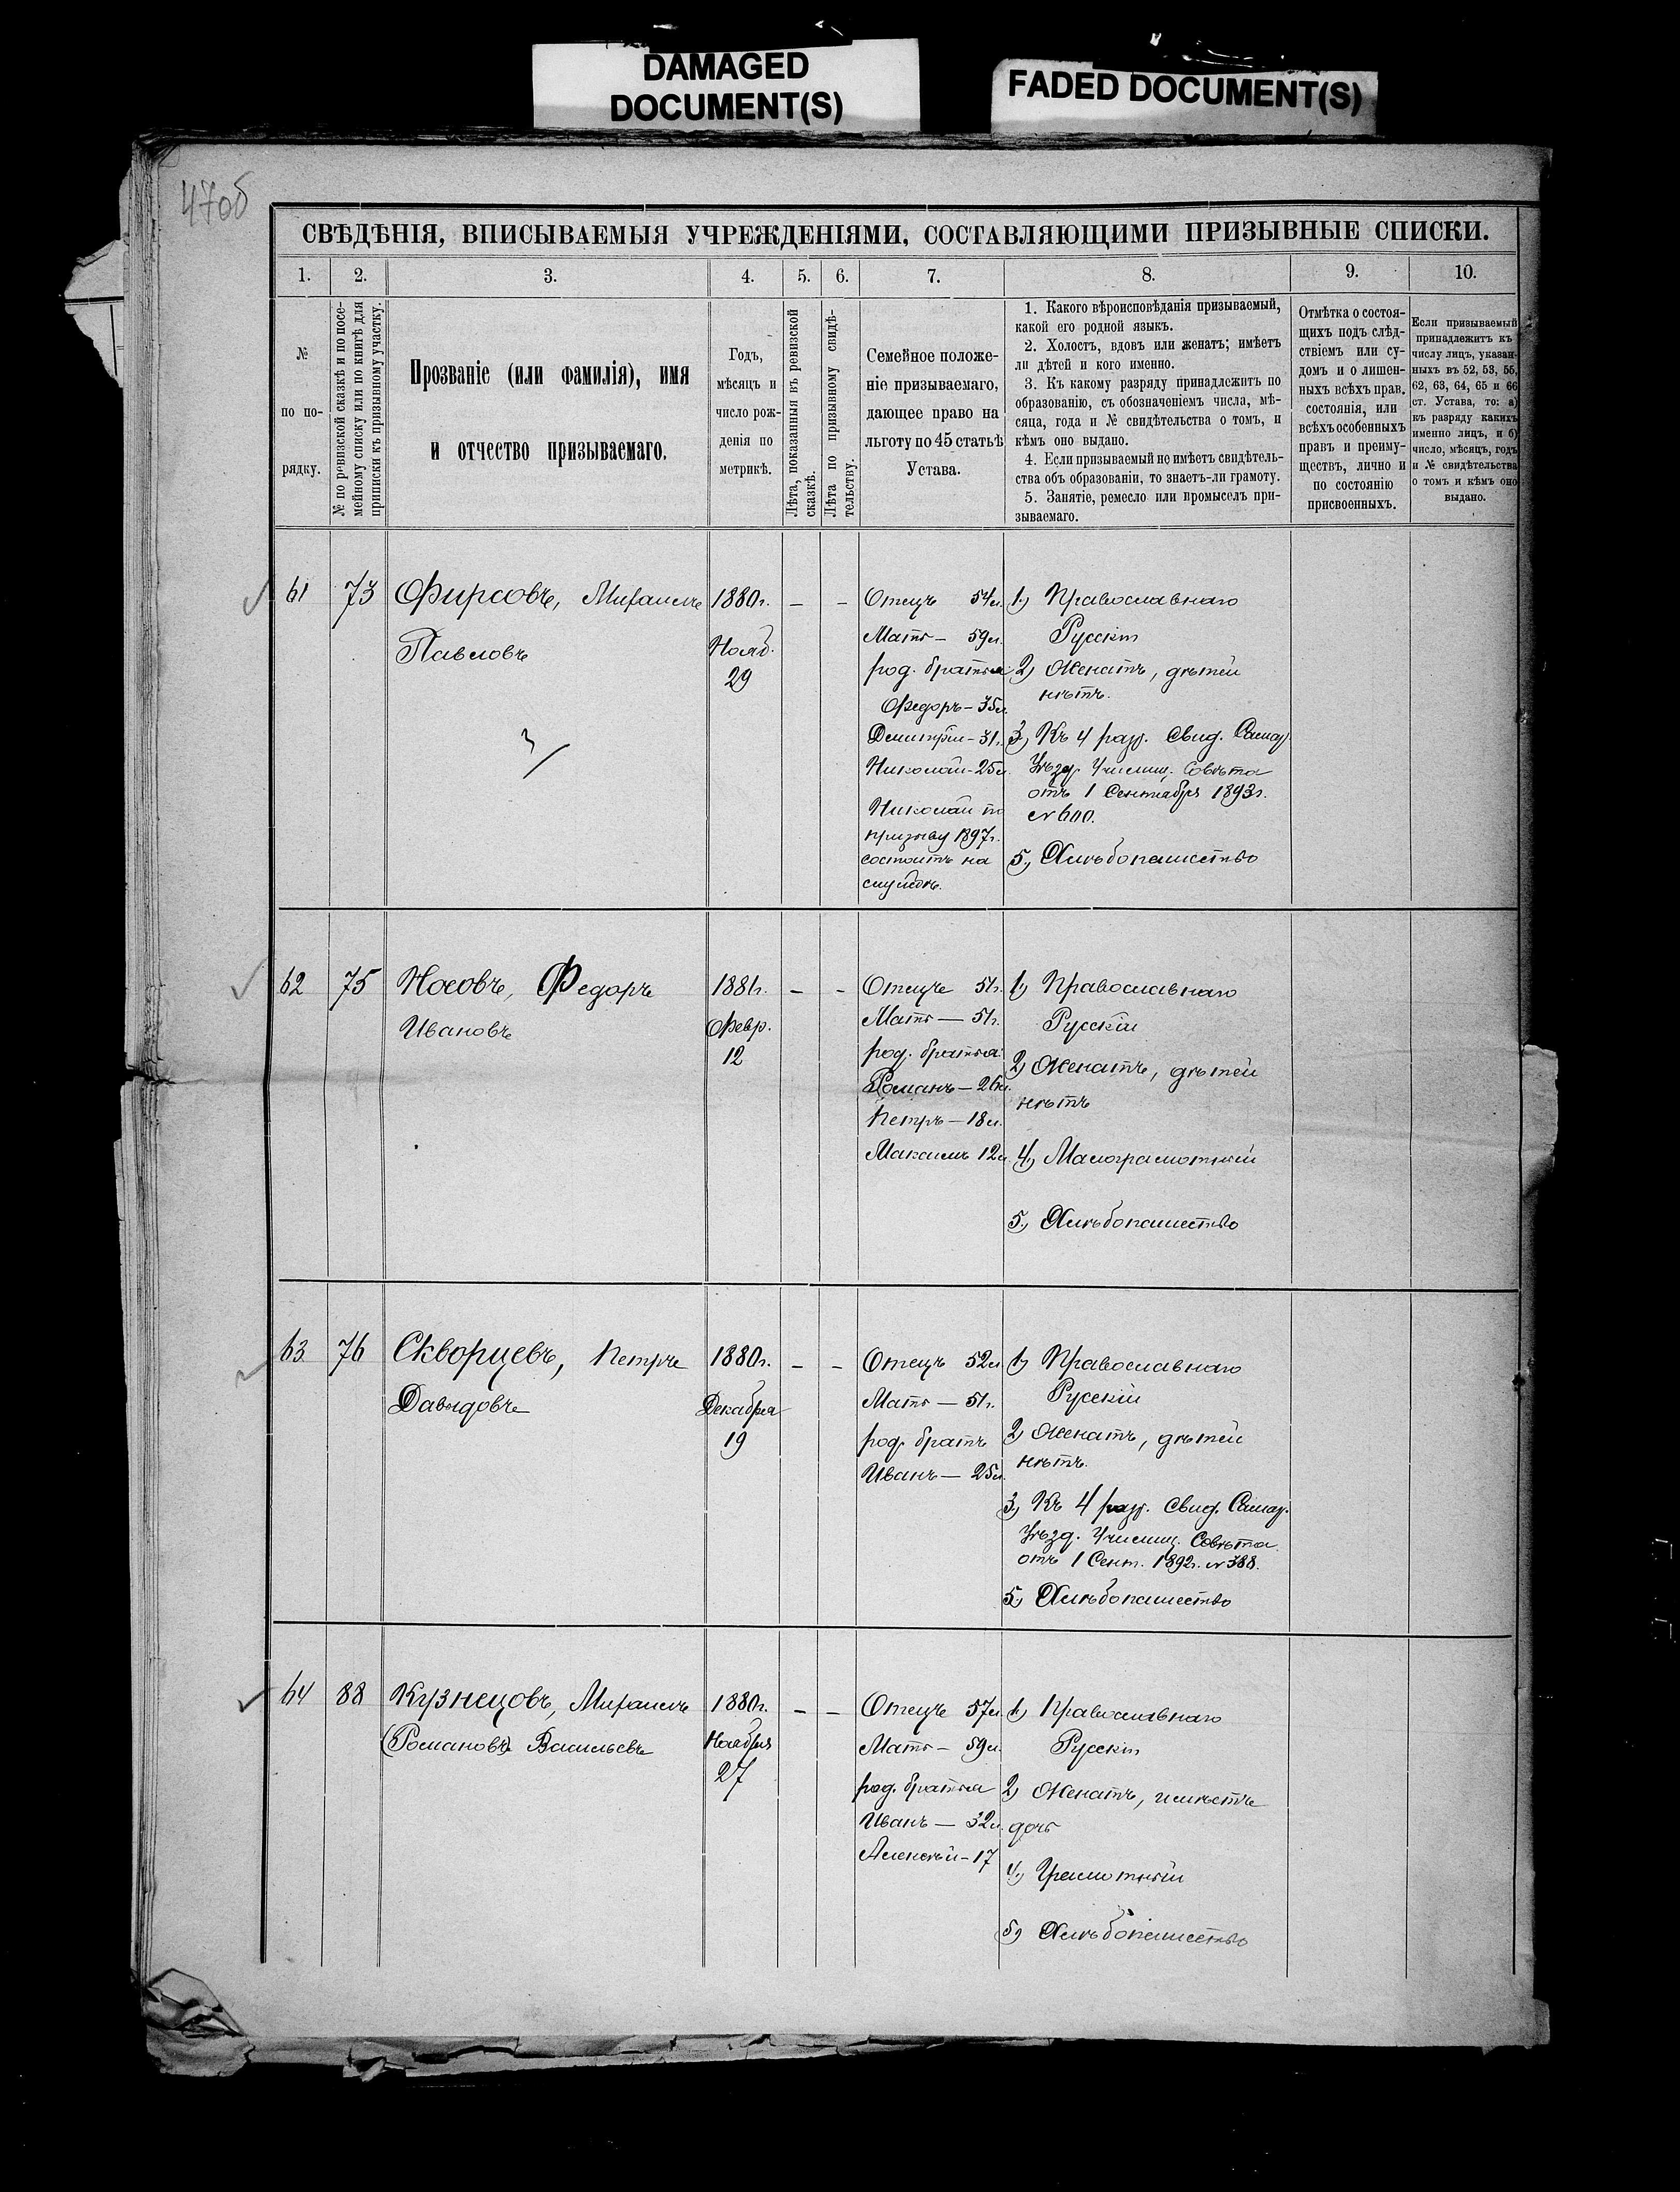 DAMAGED
DOCUMENT(S)
FADED DOCUMENT(S)
47об
СВѢДѢНІЯ, ВПИСЫВАЕМЫЯ УЧРЕЖДЕНІЯМИ, СОСТАВЛЯЮЩИМИ ПРИЗЫВНЫЕ СПИСКИ.
1. 2. 3. 4. 5. 6. 7. 8. 9. 10.
№
по по-
рядку.
№ по ревизской сказкѣ и по посе-
мейному списку или по книгѣ для
приписки къ призывному участку.
Прозваніе (или фамилія), имя
и отчество призываемаго.
Годъ,
мѣсяцъ и
число рож-
денія по
метрикѣ.
Лѣта, показанныя въ ревизской
сказкѣ.
Лѣта по призывному свидѣ-
тельству.
Семейное положе-
ніе призываемаго,
дающее право на
льготу по 45 статьѣ
Устава.
1. Какого вѣроисповѣданія призываемый,
какой его родной языкъ.
2. Холостъ, вдовъ или женатъ; имѣетъ
ли дѣтей и кого именно.
3. Къ какому разряду принадлежитъ по
образованію, съ обозначеніемъ числа, мѣ-
сяца, года и № свидѣтельства о томъ, и
кѣмъ оно выдано.
4. Если призываемый не имѣетъ свидѣтель-
ства объ образованіи, то знаетъ-ли грамоту.
5. Занятіе, ремесло или промыселъ при-
зываемаго.
Отмѣтка о состоя-
щихъ подъ слѣд-
ствіемъ или су-
домъ и о лишен-
ныхъ всѣхъ прав.
состоянія, или
всѣхъ особенныхъ
правъ и преиму-
ществъ, лично и
по состоянію
присвоенныхъ.
Если призываемый
принадлежитъ къ
числу лицъ, указан-
ныхъ въ 52, 53, 55,
62, 63, 64, 65 и 66
ст. Устава, то: а)
къ разряду какихъ
именно лицъ, и б)
число, мѣсяцъ, годъ
и № свидѣтельства
о томъ и кѣмъ оно
выдано.
61 73 Фирсовъ, Михаилъ
Павловъ
1880г.
Нояб.
29
– –
Отецъ 54л.
Мать – 59л.
род. братья
Федоръ – 35л.
Дмитрій – 31г.
Николай – 25л.
Николай по
призыву 1897г.
состоитъ на
службѣ.
1) Православнаго
Русскій
2) Женатъ, дѣтей
нѣтъ.
3) Къ 4 разр. Свид. Самар.
Уѣзд. Училищ. Совѣта
отъ 1 Сентября 1893г.
№ 600.
5) Хлѣбопашество
62 75 Носовъ, Федоръ
Ивановъ
1881г.
Февр.
12
– –
Отецъ 51г.
Мать — 51г.
род. братья
Романъ – 26л.
Петръ – 18л.
Максимъ 12л.
1) Православнаго
Русскій
2) Женатъ, дѣтей
нѣтъ
4) Малограмотный
5) Хлѣбопашество
63 76 Скворцевъ, Петръ
Давыдовъ
1880г.
Декабря
19
– –
Отецъ 52л.
Мать — 51г.
род. братъ
Иванъ — 25л.
1) Православнаго
Русскій
2) Женатъ, дѣтей
нѣтъ.
3) Къ 4 разр. Свид. Самар.
Уѣзд. Училищ. Совѣта
отъ 1 Сент. 1892г. № 388.
5) Хлѣбопашество
64 88 Кузнецовъ, Михаилъ
(Романовъ) Васильевъ
1880г.
Ноября
27
– –
Отецъ 57л.
Мать – 59л.
род. братья
Иванъ — 32л.
Алексѣй – 17
1) Православнаго
Русскій
2) Женатъ, имѣетъ
дочь
4) Грамотный
5) Хлѣбопашество